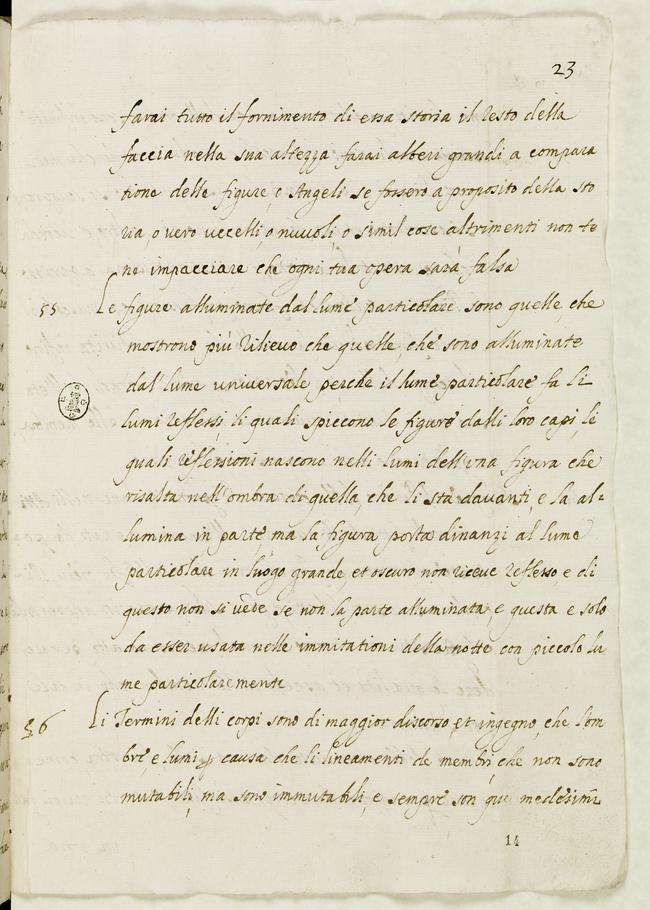 23
farai tutto il fornimento di essa storia il resto della
faccia nella sua altezza farai alberi grandi a compara
tione delle figure, o Angeli se fossero a proposito della sto
ria, o vero uccelli, o nuuoli, o simil cose altrimenti non te
ne impacciare che ogni tua opera sarà falsa
55 Le figure alluminate dal lume particolare sono quelle, che
mostrono più rilieuo che quelle, che sono alluminate
dal lume uniuersale perche il lume particolare fa li
lumi reflessi, li quali spiccono le figure dalli loro capi, le
quali reflessioni nascono nelli lumi dell'una figura che
risalta nell'ombra di quella, che li sta dauanti, e la al=
lumina in parte ma la figura posta dinanzi al lume
particolare in luogo grande et oscuro non riceue reflesso e di
questo non si uede se non la parte alluminata, e questa e solo
da esser usata nelle immitationi della notte con piccolo lu
me particolaremente
56 Li Termini delli corpi sono di maggior discorso et ingegno, che l'om
bre, e lumi, p causa che li lineamenti de membri, che non sono
mutabili, ma sono immutabili, e sempre son que medesimi
14